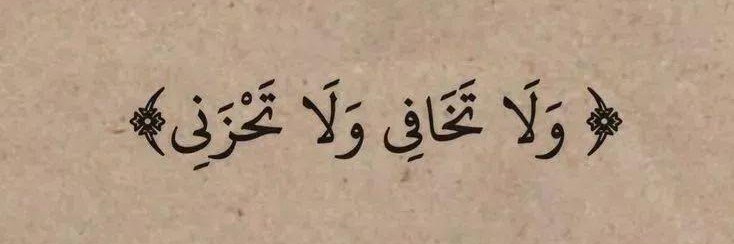 ﴿ وَلَا تَخَافِى وَلَا تَحْزَنِى ﴾